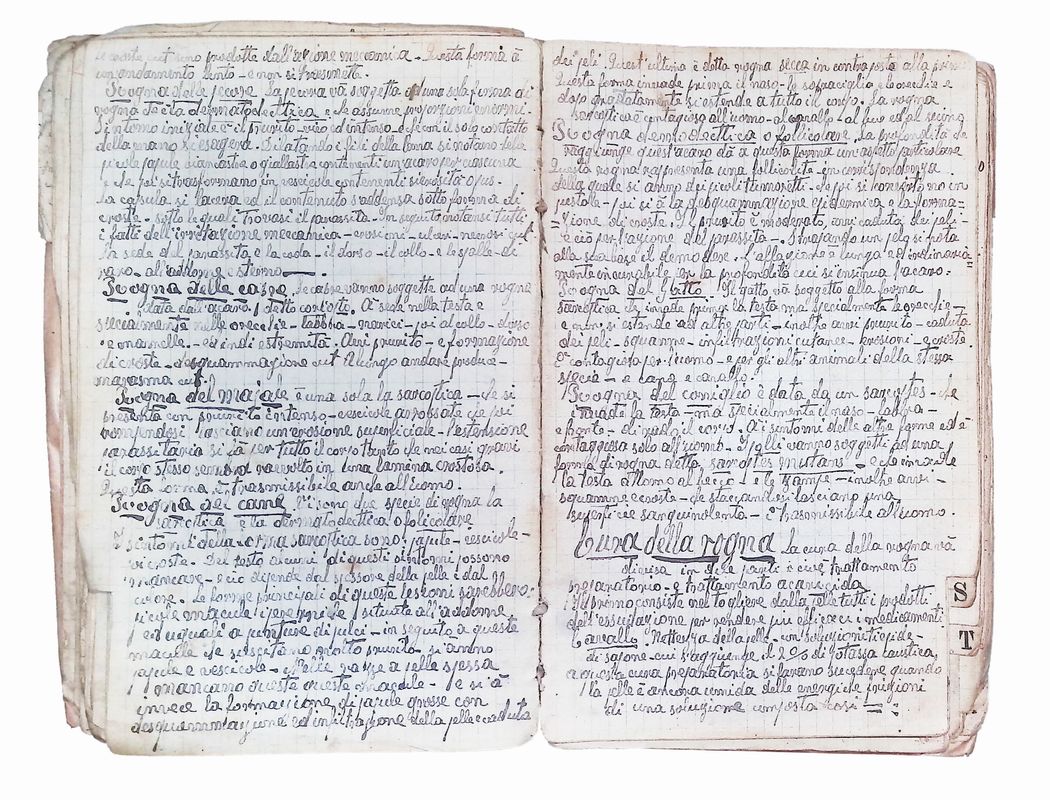 le croste cut. sono prodotte dall'azione meccanica - Questa forma à
un andamento lento - e non si trasmette.
Rogna delle pecore La pecora và soggetta ad una sola forma di
rogna data dal dermatodettico - che assume proporzioni enormi.
Sintomo iniziale è il prurito - vivo ed intenso - che con il solo contatto
della mano si esagera. Dilatando i fili della lana si notano delle
picole papule biancastre o giallastre contenenti un'acaro per ciascuna
e che poi si trasformano in vescicole contenenti sierosità o pus.
La capsula si lacera ed il contenuto s'addensa sotto forma di
croste - sotto le quali trovasi il parassita - In seguito notansi tutti
i fatti dell'irritazione meccanica - erosioni - ulceri - necrosi cut.
La sede del parassita è la coda - il dorso - il collo - e le spalle - di
raro - all'addome esterno
Rogna delle capre. Le capre vanno soggette ad una rogna
data dall'acaro detto corioti. À sede nella testa e
specialmente nelle orecchie - labbra - narici - poi al collo - dorso
e mammelle - ed indi estremità. Àvvi prurito - e formazione
di croste - desquammazione cut. A lungo andare produce -
marasma cut.
Rogna del majale è una sola la sarcoptica - che si
presenta con prurito intenso - vescicole arrossate che poi
rompendosi lasciano un'erosione superficiale - l'estensione
parassitaria si fà per tutto il corpo tanto che nei casi gravi
il corpo stesso sembra ravvolto in una lamina crostosa.
Questa forma è trasmissibile anche all'uomo.
Rogna dei cane Vi sono due specie di rogna la
sarcoptica e la dermatodettica o folicolare
I sintomi della forma sarcoptica sono: papule - vescicole -
e croste. Del resto alcuni di questi sintomi possono
mancare - e ciò dipende dal spessore della pelle e dal
- Le forme principali di queste lesioni sarebbero:
macule ipermiche situate all'addome
ed uguali a punture di pulci - in seguito a queste
macule che suscitano molto prurito si anno
papule e vescicole - razze a pelle spessa
mancano queste macule - e si à
invece la formazione di papule grosse con
desquammazione ed infiltrazione della pelle e caduta
dei peli. Quest'ultima è detta rogna secca in contraposto alla prima
Questa forma invade prima il naso - le sopraciglia - le orecchie e
dopo gradatamente si estende a tutto il corpo. La rogna
sarcoptica è contagiosa all'uomo - al cavallo - al bue ed al suino
Rogna demodectica o follicolare. La profondità che
raggiunge quest'acaro dà a questa forma un'aspetto particolare
Questa rogna rappresenta una follicolite - in corrispondenza
della quale si anno dei picoli tumoretti - che poi si convertono in
pustole - poi si à la desquammazione epidermica e la forma=
=zione di croste. Il prurito è moderato, avvi caduta dei peli -
e ciò per l'azione del parassita - Strapando un pelo si porta
alla sua base il demodex. L'affezione è lunga ed ordinaria=
mente incurabile per la profondità cui si insinua l'acaro.
Rogna del Gatto. Il gatto và soggetto alla forma
sarcoptica che invade prima la testa ma specialmente le orecchie -
e non si estende ad altre parti - inoltre avvi prurito - caduta
dei peli - squamme - infiltrazioni cutanee - erosioni - e croste.
È contagiosa per l'uomo - e per gli altri animali della stessa
specie - e cane e cavallo.
Rogna del coniglio è data da un sarcoptes - che
invade la testa - ma specialmente il naso - labbra -
e fronte - di rado il corpo. À i sintomi delle altre forme ed è
contagiosa solo all'uomo. I polli vanno soggetti ad una
forma di rogna detta sarcoptes mutans - e che invade
la testa attorno al becco - e le zampe - inoltre avvi -
squamme e croste - che staccandosi lasciano una
superficie sanguinolenta - è trasmissibile all'uomo.
Cura della rogna La cura della rogna và
divisa in due parti è cioè trattamento
preparatorio - e trattamento acaricida
Il primo consiste nel togliere dalla pelle tutti i prodotti
dell'essudazione per rendere più efficaci i medicamenti
Cavallo. Nettezza della pelle - con soluzioni tiepide -
di sapone - cui s'aggiunge il 2% di potassa caustica,
a questa cura preparatoria si farano sucedere quando
la pelle è ancora umida delle energiche frizioni
di una soluzione composta così =:
S
T